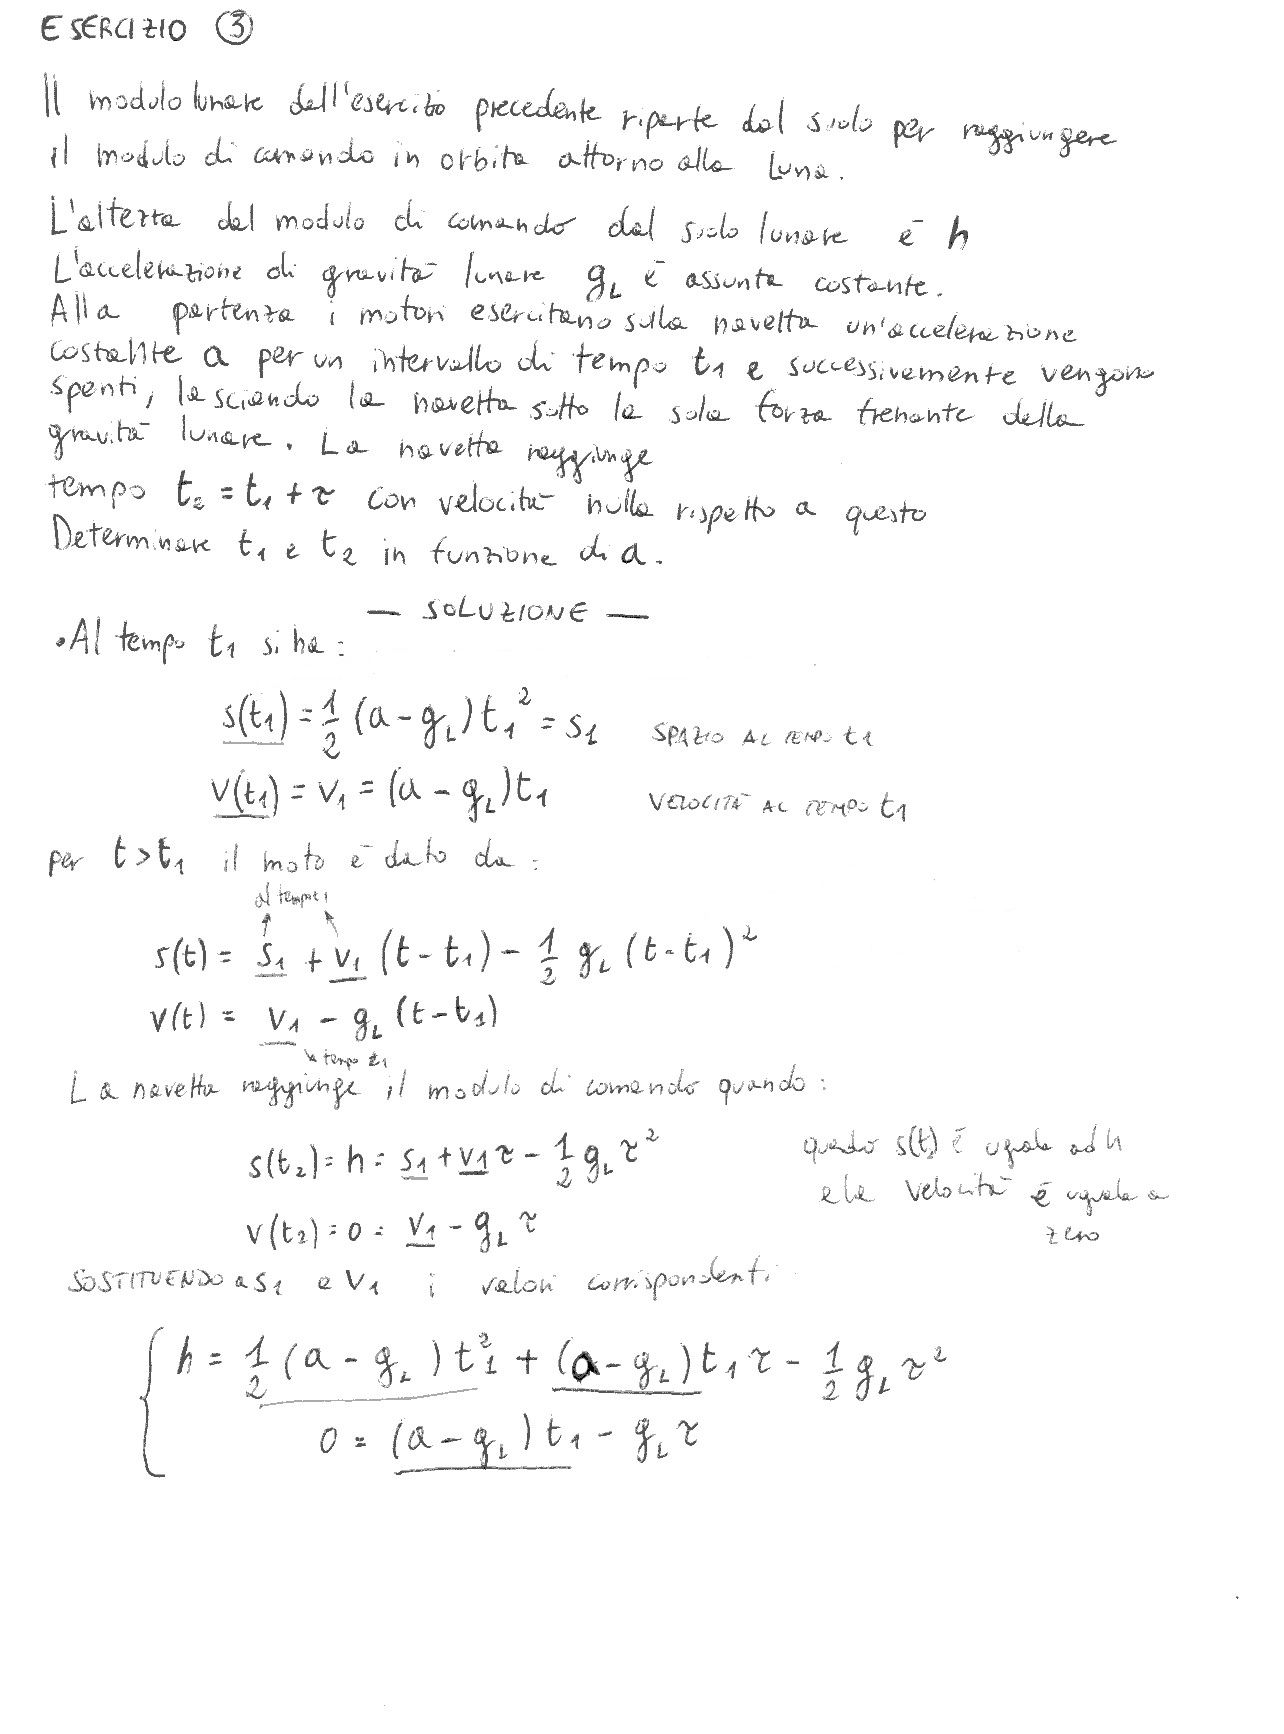 ESERCIZIO ③
Il modulo lunare dell'esercizio precedente riparte dal suolo per raggiungere
il modulo di comando in orbita attorno alla Luna.
L'altezza del modulo di comando dal suolo lunare è h
L'accelerazione di gravità lunare g_L è assunta costante.
Alla partenza i motori esercitano sulla navetta un'accelerazione
costante a per un intervallo di tempo t₁ e successivamente vengono
spenti, lasciando la navetta sotto la sola forza frenante della
gravità lunare. La navetta raggiunge
tempo t₂ = t₁ + τ con velocità nulla rispetto a questo
Determinare t₁ e t₂ in funzione di a.
— SOLUZIONE —
• Al tempo t₁ si ha:
s(t₁) = 1/2 (a - g_L) t₁² = s₁ SPAZIO AL TEMPO t₁
v(t₁) = v₁ = (a - g_L) t₁ VELOCITÀ AL TEMPO t₁
per t > t₁ il moto è dato da:
al tempo t₁
s(t) = s₁ + v₁ (t - t₁) - 1/2 g_L (t - t₁)²
v(t) = v₁ - g_L (t - t₁)
tempo t₁
La navetta raggiunge il modulo di comando quando:
s(t₂) = h = s₁ + v₁ τ - 1/2 g_L τ² quando s(t₂) è uguale ad h
e la velocità è uguale a
v(t₂) = 0 = v₁ - g_L τ zero
SOSTITUENDO a s₁ e v₁ i valori corrispondenti
{ h = 1/2 (a - g_L) t₁² + (a - g_L) t₁ τ - 1/2 g_L τ²
0 = (a - g_L) t₁ - g_L τ